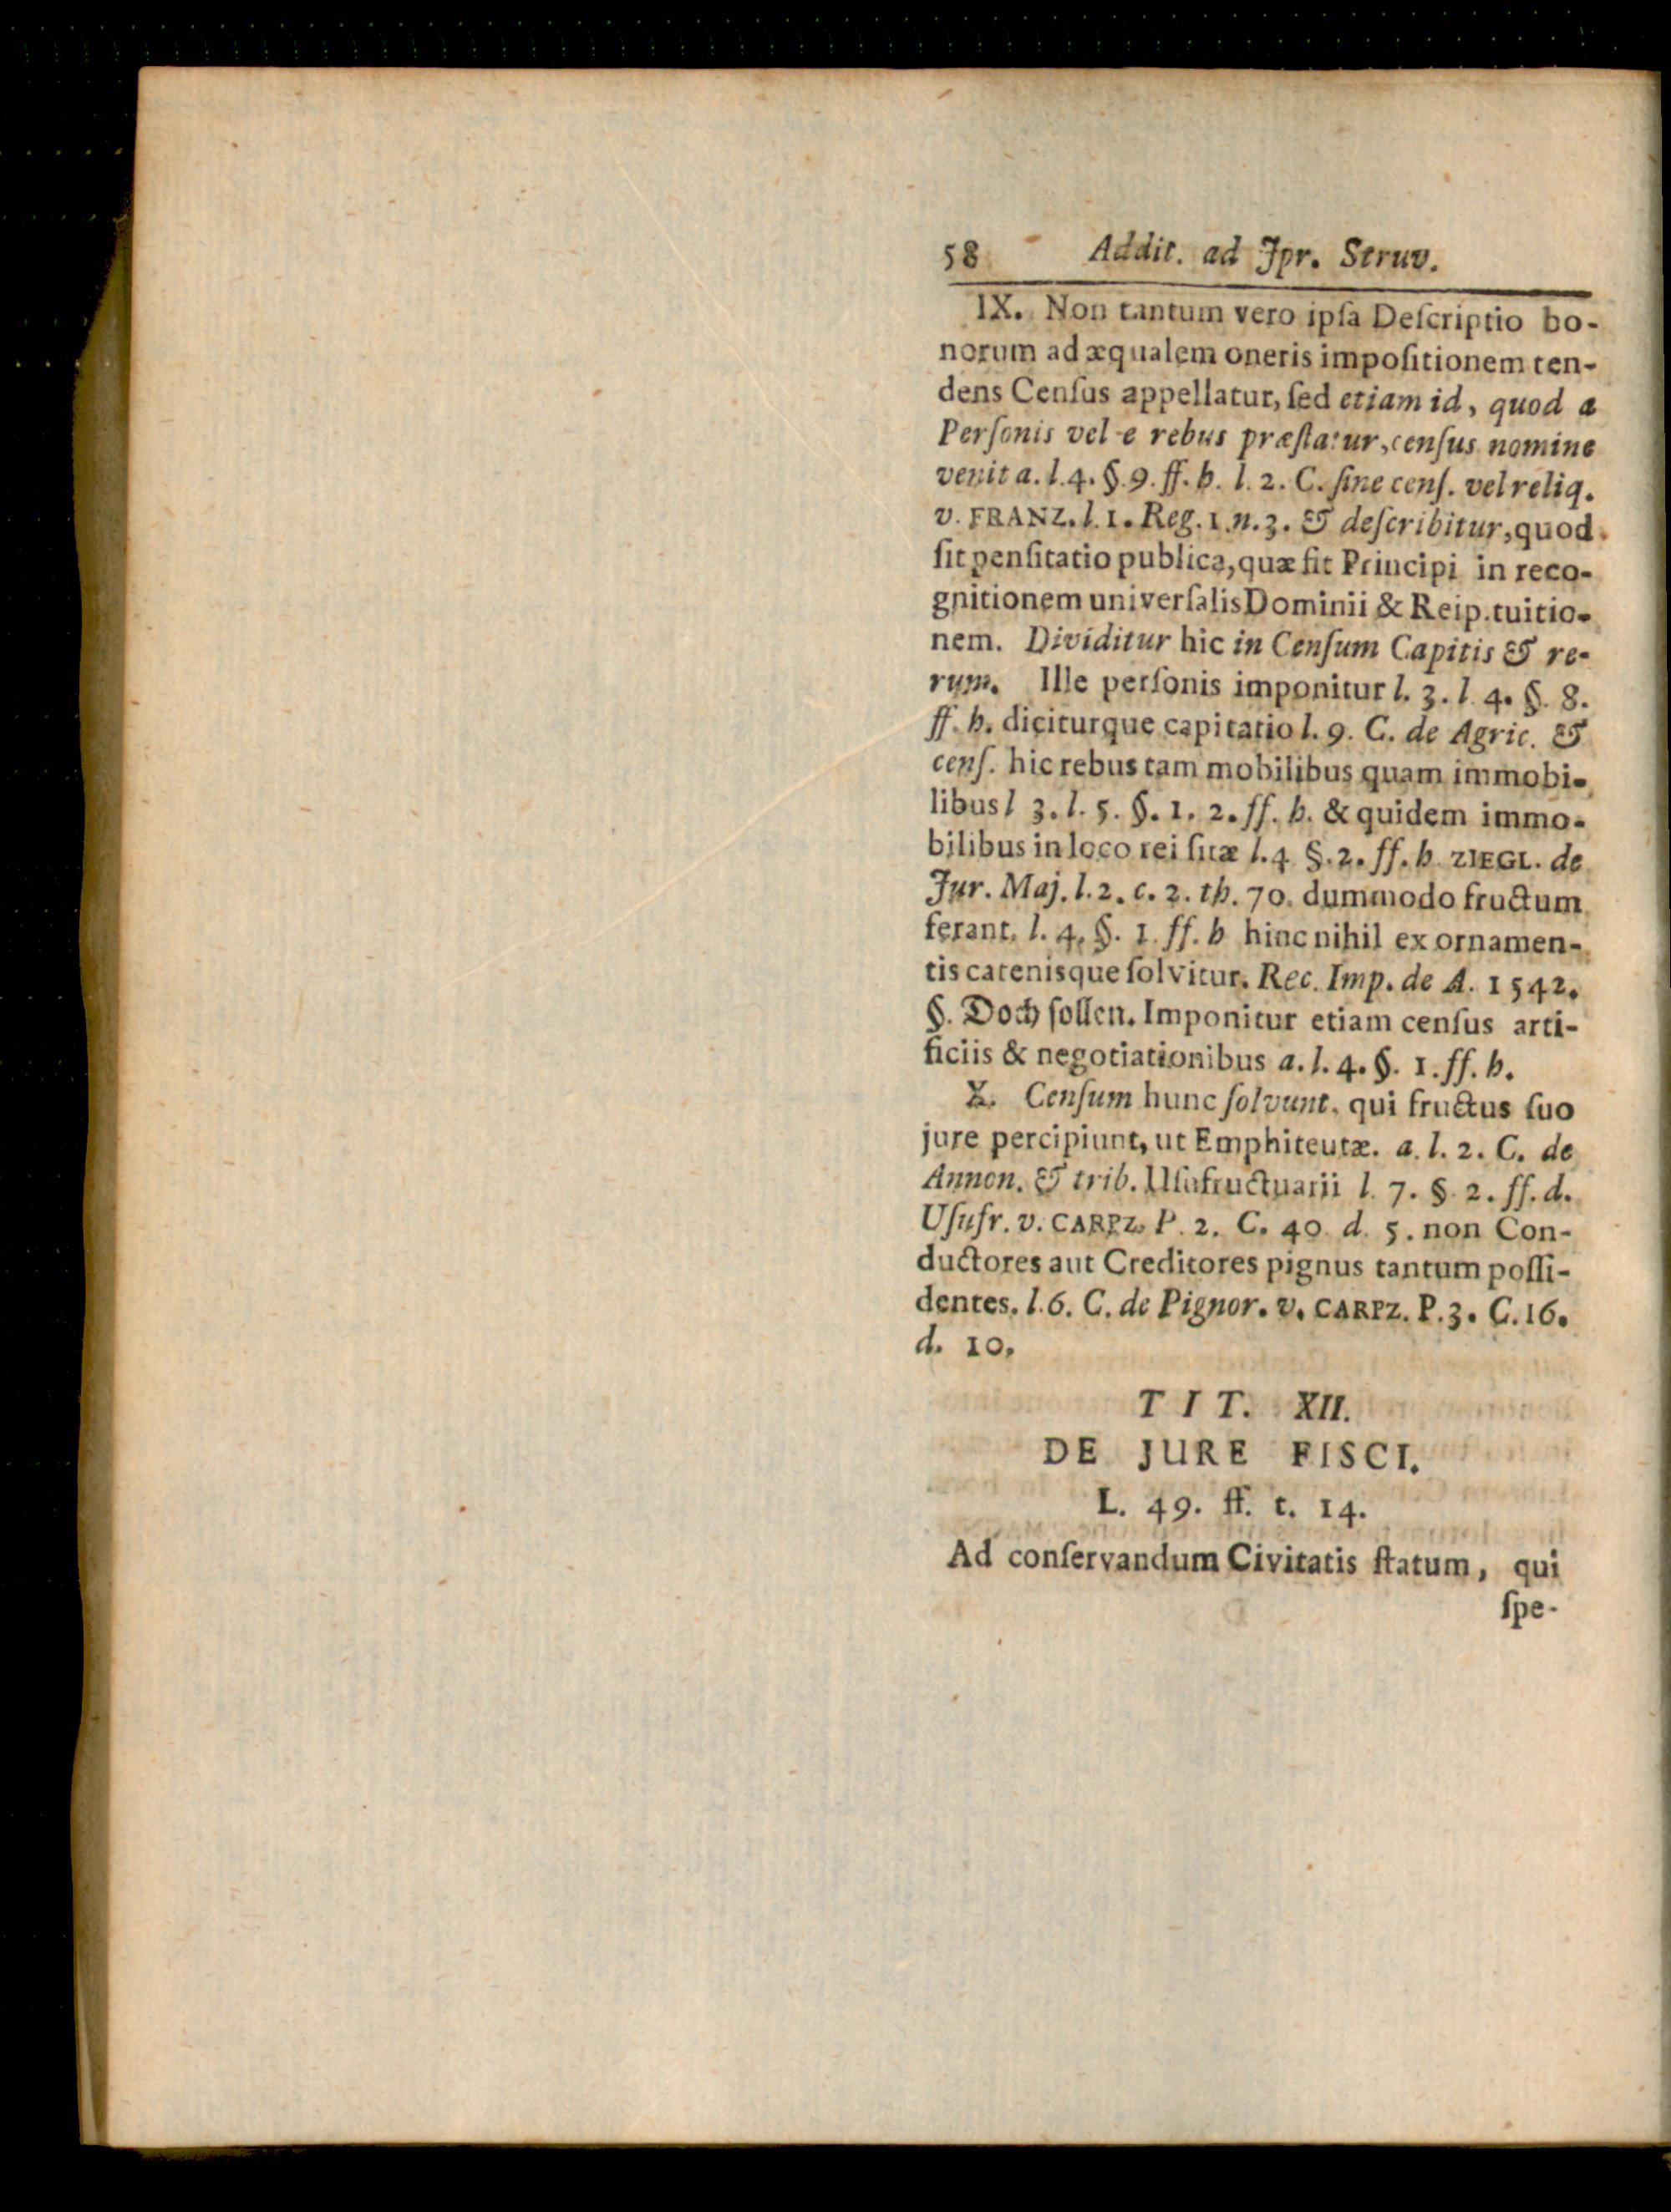 58 Addit. ad Jpr. Struv.
IX. Non tantum vero ipſa Deſcriptio bo-
norum ad æqualem oneris impoſitionem ten-
dens Cenſus appellatur, ſed etiam id, quod a
Perſonis vel e rebus præſtatur, cenſus nomine
venit a. l. 4. §. 9. ff. h. l. 2. C. ſine cenſ. vel reliq.
v. FRANZ. l. 1. Reg. 1. n. 3. & deſcribitur, quod
ſit penſitatio publica, quæ fit Principi in reco-
gnitionem univerſalis Dominii & Reip. tuitio-
nem. Dividitur hic in Cenſum Capitis & re-
rum. Ille perſonis imponitur l. 3. l. 4. §. 8.
ff. h. diciturque capitatio l. 9. C. de Agric. &
cenſ. hic rebus tam mobilibus quam immobi-
libus l 3. l. 5. §. 1. 2. ff. h. & quidem immo-
bilibus in loco rei ſitæ l. 4 §. 2. ff. h ZIEGL. de
Jur. Maj. l. 2. c. 2. th. 70. dummodo fructum
ferant, l. 4. §. 1. ff. h hinc nihil ex ornamen-
tis catenisque ſolvitur. Rec. Imp. de A. 1542.
§. Doch ſollen. Imponitur etiam cenſus arti-
ficiis & negotiationibus a. l. 4. §. 1. ff. h.
X. Cenſum hunc ſolvunt, qui fructus ſuo
jure percipiunt, ut Emphiteutæ. a. l. 2. C. de
Annon. & trib. Uſufructuarii l. 7. § 2. ff. d.
Uſufr. v. CARPZ. P. 2. C. 40 d. 5. non Con-
ductores aut Creditores pignus tantum poſſi-
dentes. l. 6. C. de Pignor. v. CARPZ. P. 3. C. 16.
d. 10.
TIT. XII.
DE JURE FISCI.
L. 49. ff. t. 14.
Ad conſervandum Civitatis ſtatum, qui
ſpe-